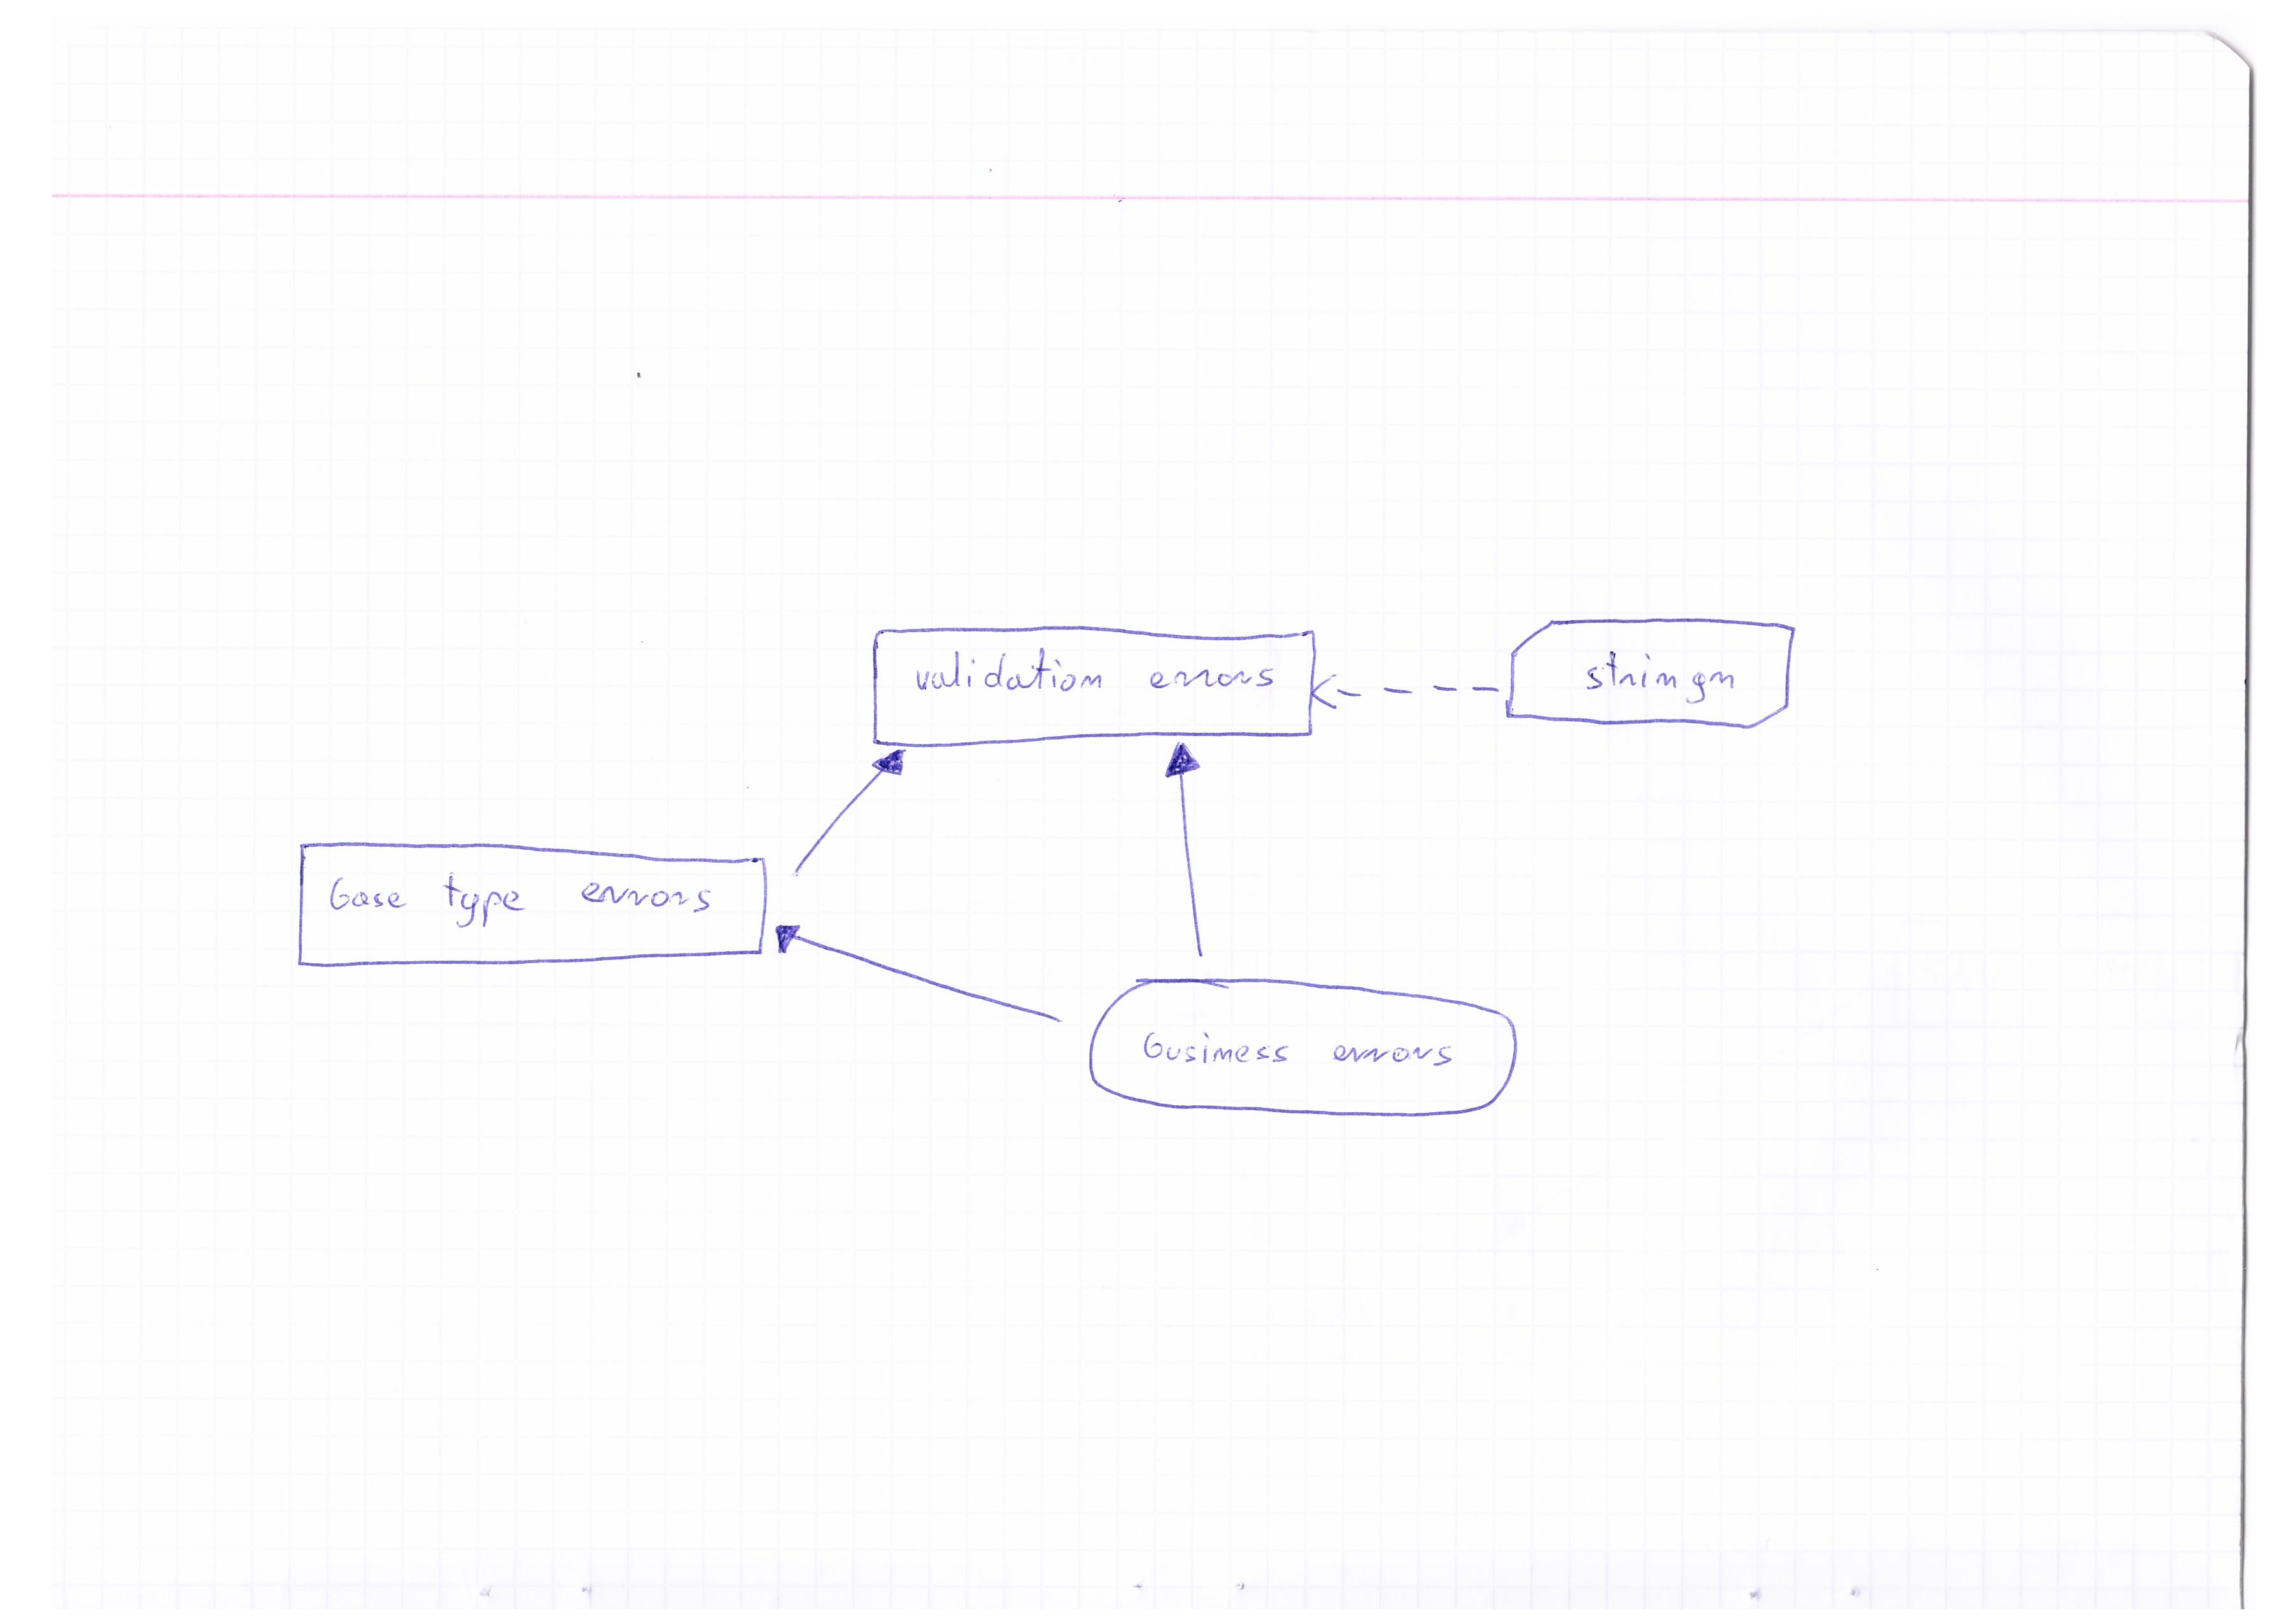 validation errors
stringn
base type errors
business errors